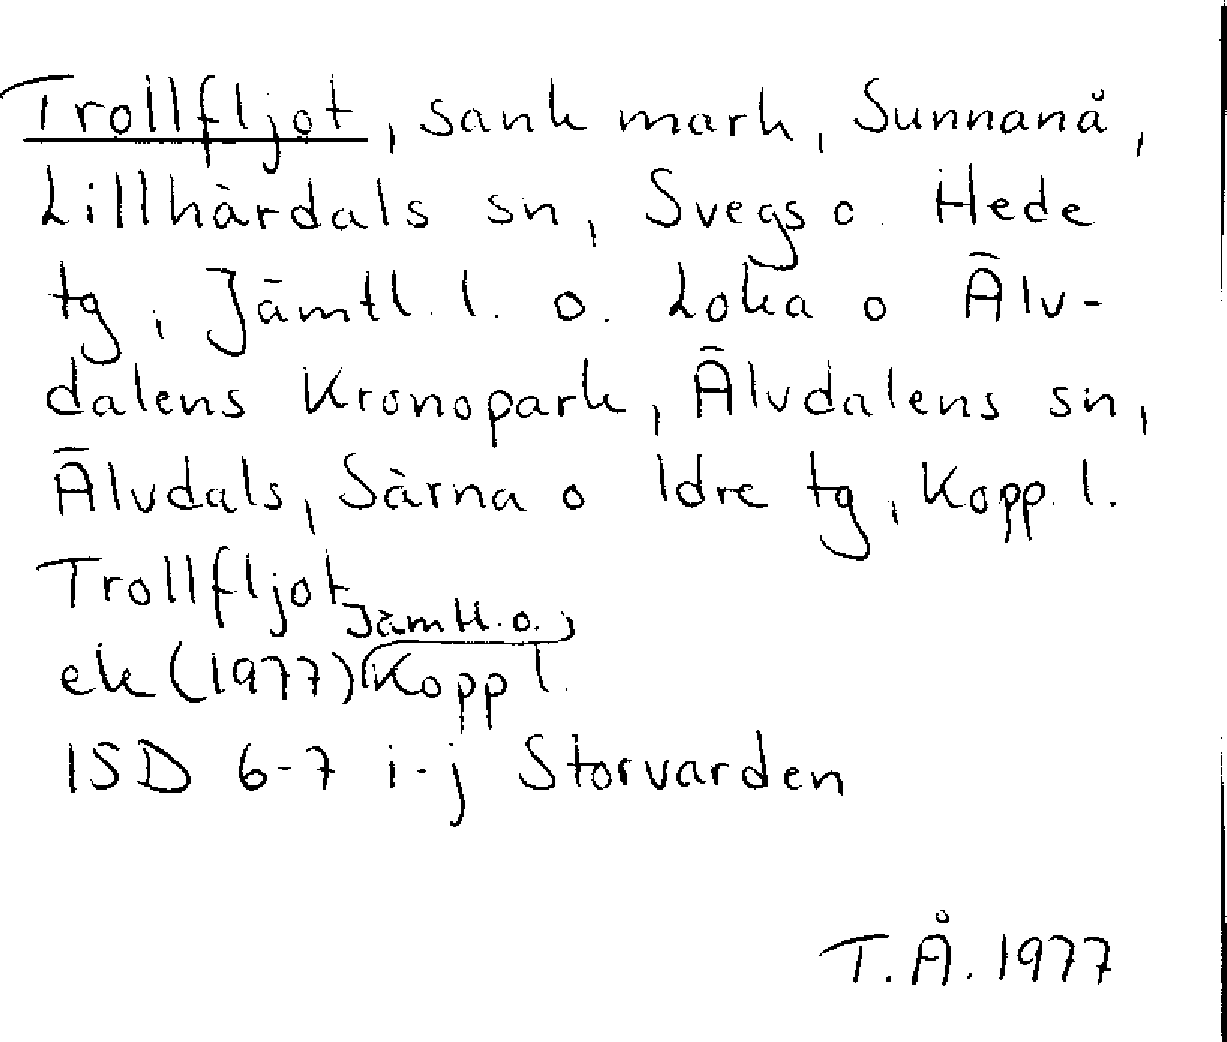 Trollfljot, sank mark, Sunnanå,
Lillhärdals sn, Svegs o. Hede
tg, Jämtl. l. o. Loka o Älv-
dalens Kronopark, Älvdalens sn,
Älvdals, Särna o Idre tg, Kopp. l.
Trollfljot
ek (1977) Jämtl. o. Kopp l.
15D 6-7 i-j Storvarden
T.Å. 1977